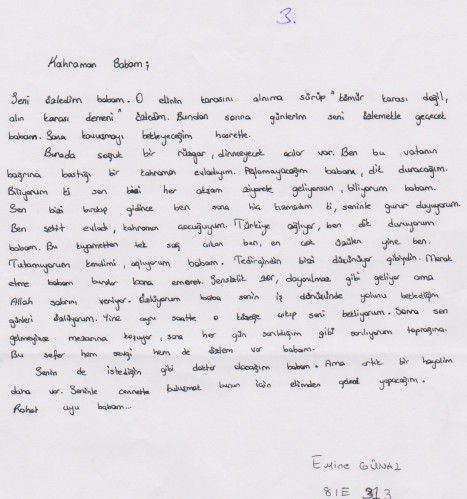 3.
Kahraman Babam;
Seni özledim babam. O elinin karasını alnıma sürüp "kömür karası değil,
alın karası demeni" özledim. Bundan sonra günlerim seni özlemekle geçecek
babam. Sana kavuşmayı bekleyeceğim hasretle.
Burada soğuk bir rüzgar, dinmeyecek acılar var. Ben bu vatanın
bağrına bastığı bir kahraman evladıyım. Ağlamayacağım babam, dik duracağım.
Biliyorum ki sen bizi her akşam ziyarete geliyorsun, biliyorum babam.
Sen bizi bırakıp gidince ben sana hiç kızmadım ki, seninle gurur duyuyorum.
Ben şehit evladı, kahraman çocuğuyum. Türkiye ağlıyor, ben dik duruyorum
babam. Bu kıyametten tek sağ çıkan ben, en çok üzülen yine ben.
Tutamıyorum kendimi, ağlıyorum babam. Tedirgindin bizi düşünüyor gibiydin. Merak
etme babam bunlar bana emanet. Sensizlik zor, dayanılmaz gibi geliyor ama
Allah sabrını veriyor. Özlüyorum baba senin iş dönüşünde yolunu beklediğim
günleri özlüyorum. Yine aynı saatte o köşeye çıkıp seni bekliyorum. Sonra sen
gelmeyince mezarına koşuyor, sana her gün sarıldığım gibi sarılıyorum toprağına.
Bu sefer hem sevgi hem de özlem var babam.
Senin de istediğin gibi doktor olacağım babam. Ama artık bir hayalim
daha var. Seninle cennette buluşmak bunun için elimden geleni yapacağım.
Rahat uyu babam...
Emine GÜNAL
8/E 313